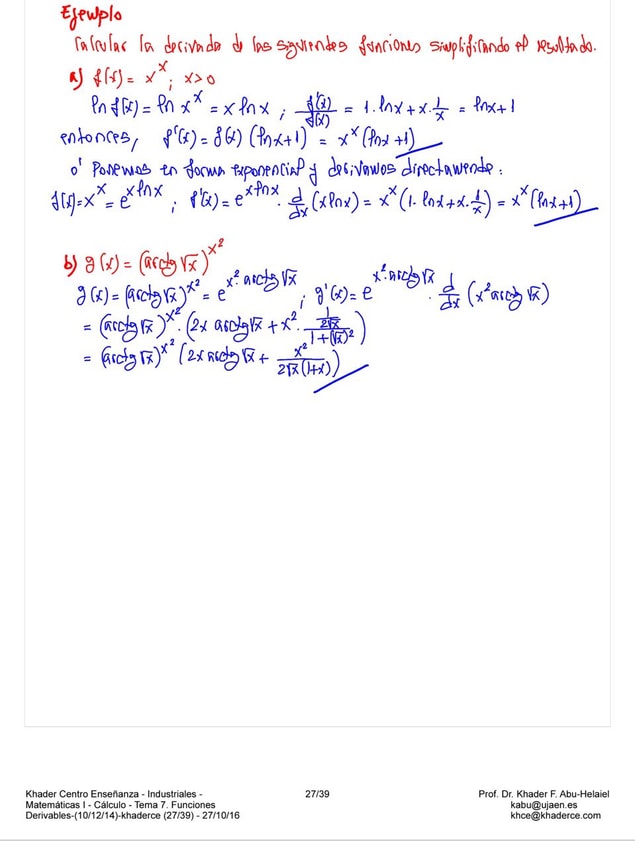 Ejemplo
Calcular la derivada de las siguientes funciones simplificando el resultado.
a) f(x) = x^x ; x>0
ln f(x) = ln x^x = x ln x ; f'(x)/f(x) = 1·lnx + x·1/x = lnx+1
entonces, f'(x) = f(x) (lnx+1) = x^x (lnx+1)
o' Ponemos en forma exponencial y derivamos directamente:
f(x) = x^x = e^(x lnx) ; f'(x) = e^(x lnx) · d/dx (x lnx) = x^x (1·lnx + x·1/x) = x^x (lnx+1)
b) g(x) = (arctg √x)^x²
g(x) = (arctg √x)^x² = e^(x²·arctg √x) ; g'(x) = e^(x²·arctg √x) · d/dx (x² arctg √x)
= (arctg √x)^x² · (2x arctg √x + x² · (1/(2√x))/(1+(√x)²))
= (arctg √x)^x² (2x arctg √x + x²/(2√x(1+x)))
Khader Centro Enseñanza - Industriales -
Matemáticas I - Cálculo - Tema 7. Funciones
Derivables-(10/12/14)-khaderce (27/39) - 27/10/16
27/39
Prof. Dr. Khader F. Abu-Helaiel
kabu@ujaen.es
khce@khaderce.com